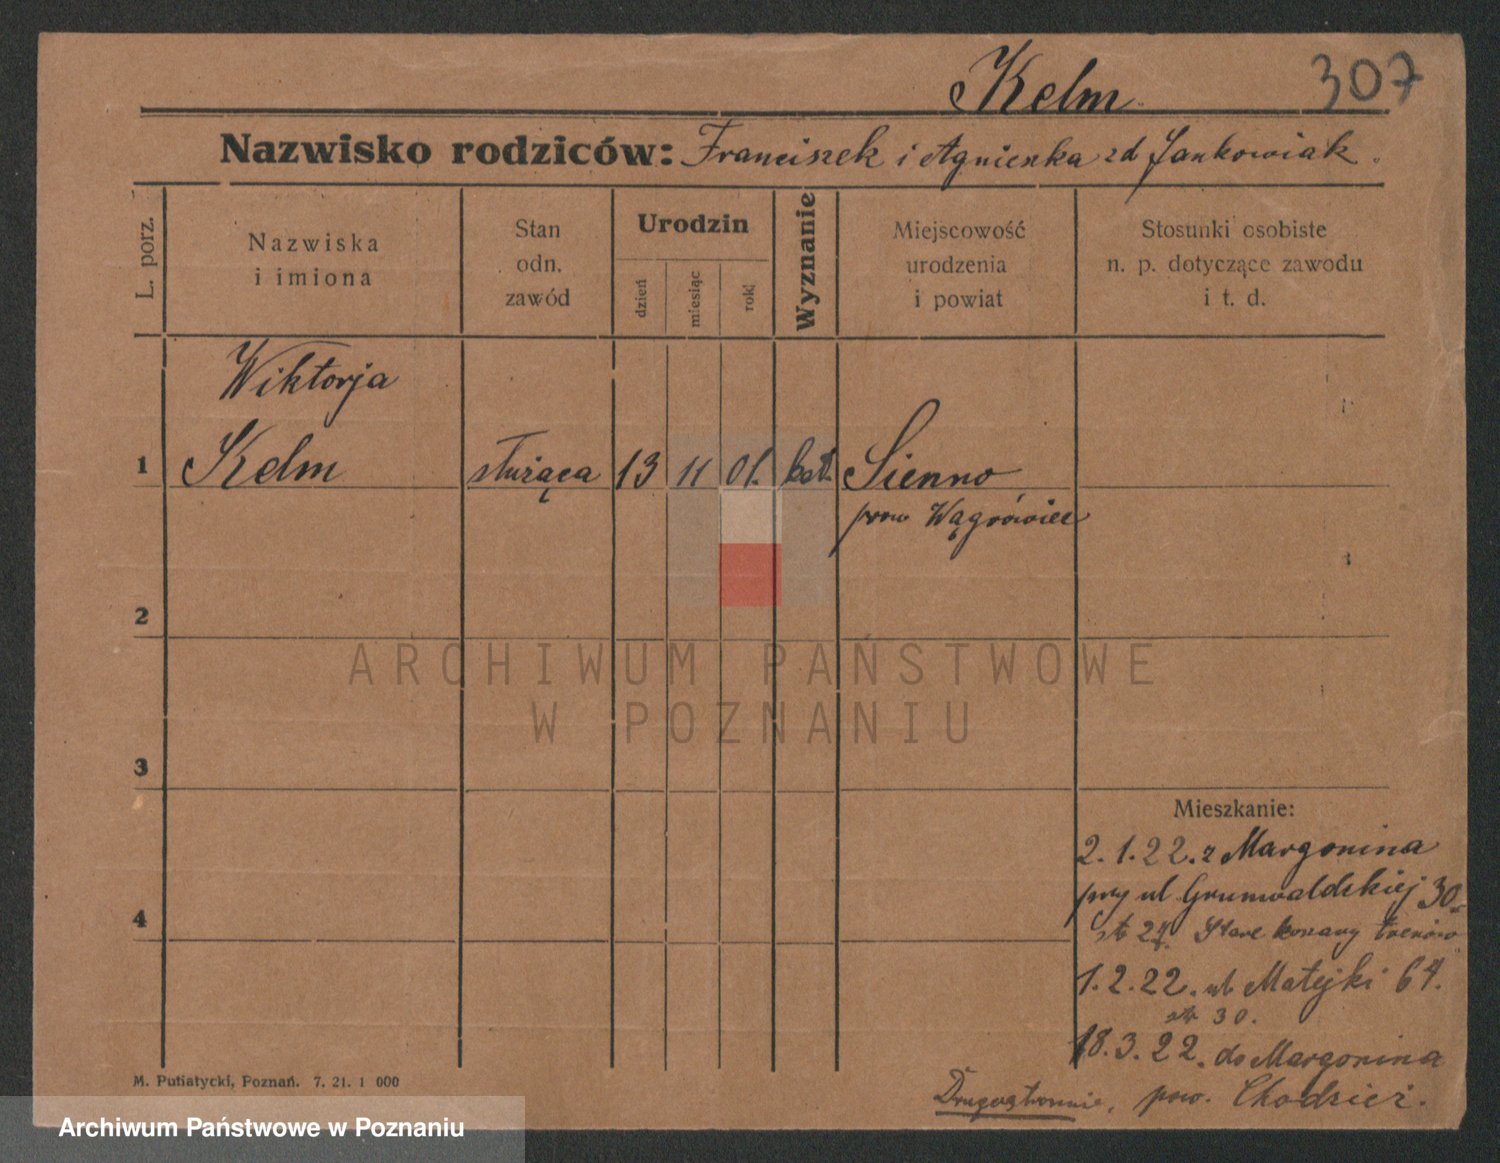 Kelm. 307
Nazwisko rodziców: Franciszek i Agnieszka zd Jankowiak.
L. porz.
Nazwiska
i imiona
Stan
odn.
zawód
Urodzin
dzień
miesiąc
rok
Wyznanie
Miejscowość
urodzenia
i powiat
Stosunki osobiste
n. p. dotyczące zawodu
i t. d.
Wiktorja
1 Kelm służąca 13 11 01. kat. Sienno
pow Wągrówiec
2
ARCHIWUM PAŃSTWOWE
W POZNANIU
3
Mieszkanie:
2.1.22. z Margonina
przy ul Grunwaldzkiej 30
4
str 24. Stare koszary trenów
1.2.22. ul Matejki 64.
str 30.
18.3.22. do Margonina
M. Putiatycki, Poznań. 7. 21. 1 000
Drugostronnie, pow. Chodzież.
Archiwum Państwowe w Poznaniu